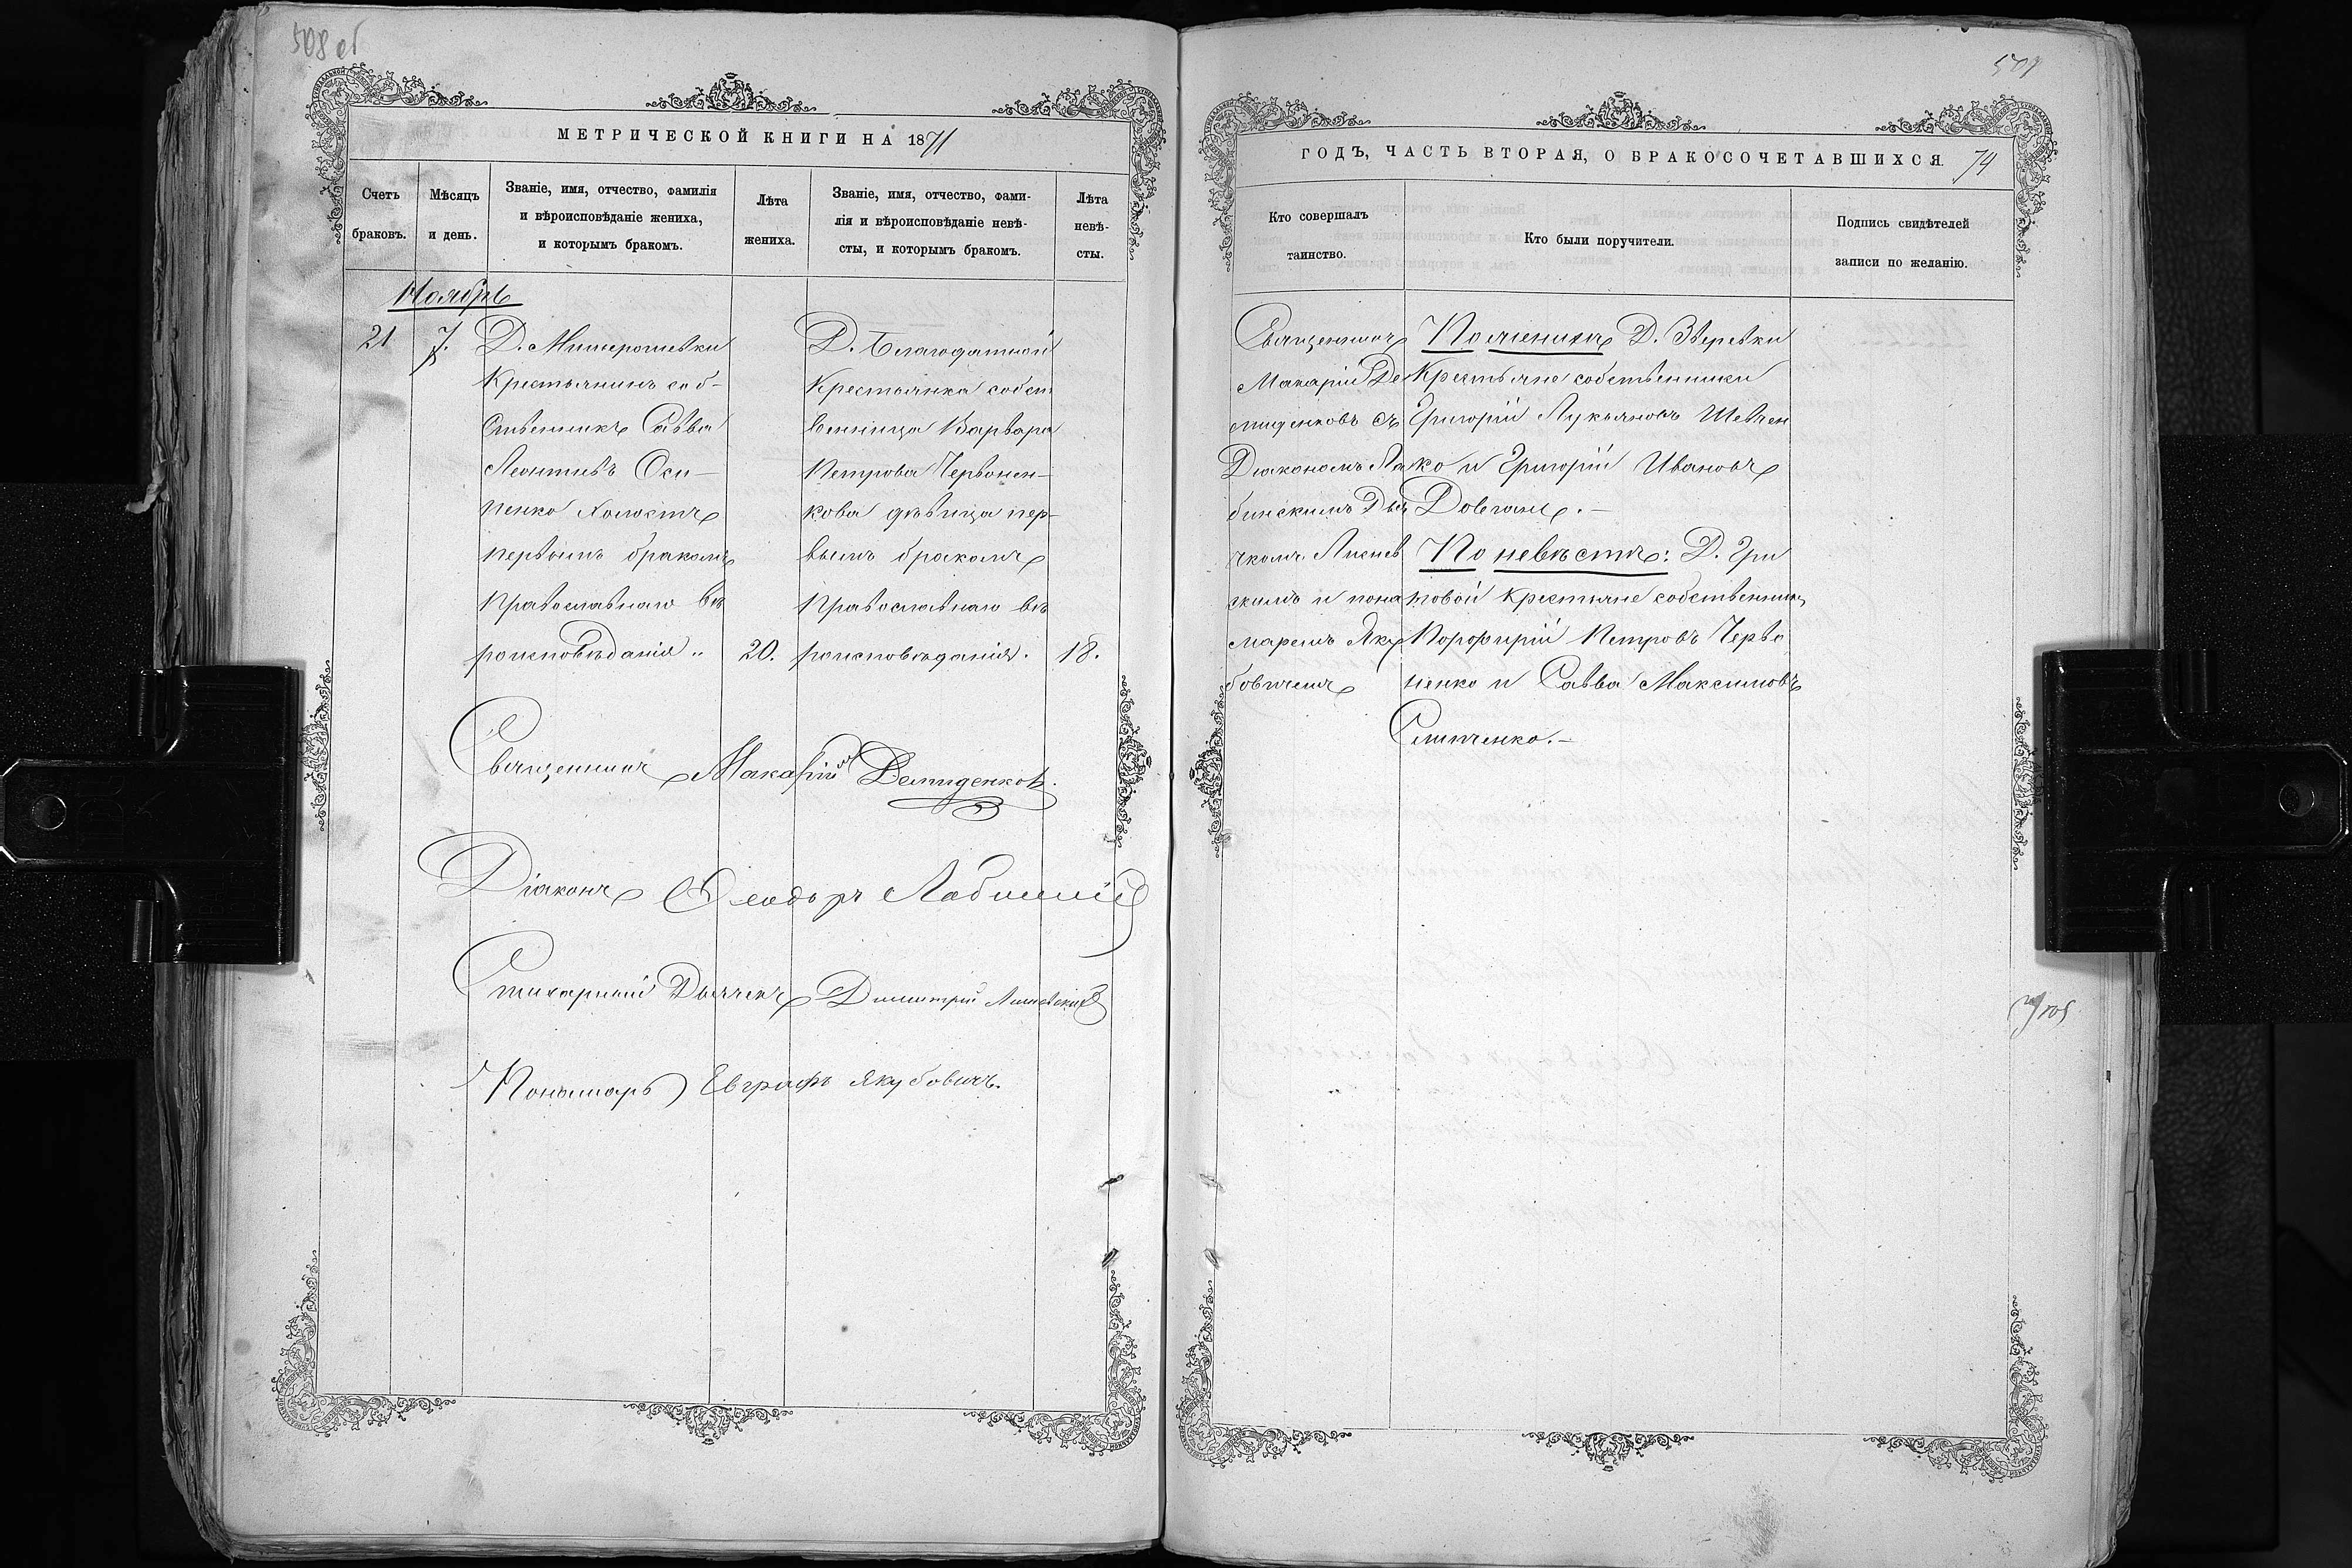 508 об
МЕТРИЧЕСКОЙ КНИГИ НА 1871
Счетъ браковъ.
Мѣсяцъ и день.
Званіе, имя, отчество, фамилія
и вѣроисповѣданіе жениха,
и которымъ бракомъ.
Лѣта
жениха.
Званіе, имя, отчество, фами-
лія и вѣроисповѣданіе невѣ-
сты, и которымъ бракомъ.
Лѣта
невѣ-
сты.
Ноябрь
21
7.
Д.
Крестьянинъ соб-
ственникъ Савва
Леонтіевъ Оси-
пенко холостъ
первымъ бракомъ
Православнаго вѣ
роисповѣданія
20.
Д. Благодатной
Крестьянка собст
венница Варвара
Петрова Червонен-
кова дѣвица пер-
вымъ бракомъ
Православнаго вѣ
роисповѣданія.
18.
Священникъ Макарій Демиденковъ.
Діаконъ Ѳеодоръ Лабинскій
Стихарный Дьячекъ Димитрій Лисневскій
Пономарь Евграфъ Якубовичъ.
509
ГОДЪ, ЧАСТЬ ВТОРАЯ, О БРАКОСОЧЕТАВШИХСЯ 74
Кто совершалъ
таинство.
Кто были поручители.
Подпись свидѣтелей
записи по желанію.
Священникъ
Макарій Де
миденковъ съ
Діакономъ Ла
бинскимъ Дья
чкомъ Лиснев
скимъ и пона
маремъ Яку
бовичемъ
По женихѣ Д. Звѣревки
Крестьяне собственники
Григорій Лукьяновъ Шевчен
ко и Григорій Ивановъ
Довгань.-
По невѣстѣ: Д. Гри
шовой Крестьяне собственники
Порфирій Петровъ Черво
ненко и Савва Максимовъ